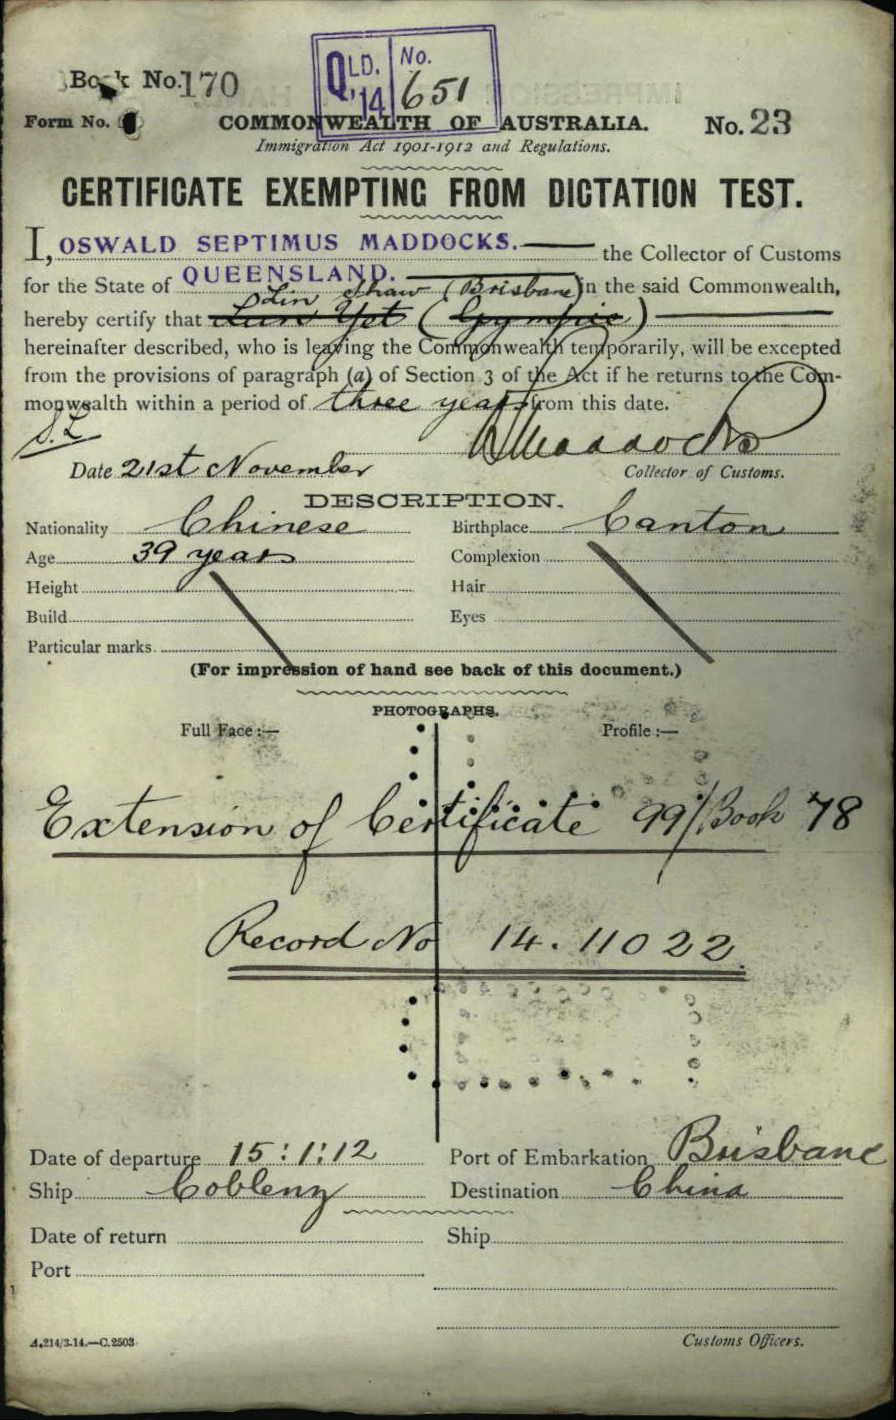 Book No. 170
QLD. '14 No. 651
Form No.
COMMONWEALTH OF AUSTRALIA.
No. 23
Immigration Act 1901-1912 and Regulations.
CERTIFICATE EXEMPTING FROM DICTATION TEST.
I, OSWALD SEPTIMUS MADDOCKS. the Collector of Customs
for the State of QUEENSLAND. in the said Commonwealth,
Lin Shaw (Brisbane)
hereby certify that Lun Yet (Gympie)
hereinafter described, who is leaving the Commonwealth temporarily, will be excepted
from the provisions of paragraph (a) of Section 3 of the Act if he returns to the Com-
monwealth within a period of three years from this date.
S.L
Maddocks
Date 21st November
Collector of Customs.
DESCRIPTION.
Nationality Chinese Birthplace Canton
Age 39 years Complexion
Height Hair
Build Eyes
Particular marks.
(For impression of hand see back of this document.)
PHOTOGRAPHS.
Full Face :— Profile :—
Extension of Certificate 99/Book 78
Record No 14.11022
Date of departure 15:1:12 Port of Embarkation Brisbane
Ship Coblenz Destination China
Date of return Ship
Port
A.214/3.14.—C.2503 Customs Officers.